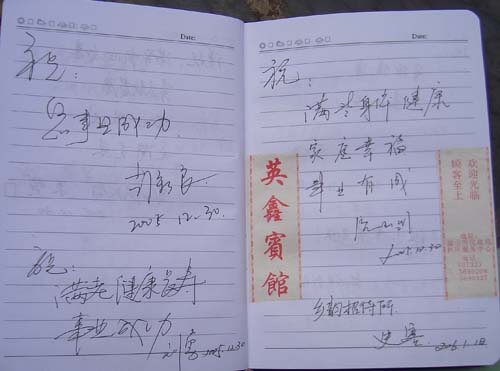 Date:
祝:
您事业成功.
2005.12.30.
祝:
满老健康长寿
事业成功
2005.12.30
Date:
祝:
满老身体健康
家庭幸福
事业有成
2005.12.30
英鑫賓館
欢迎光临
顾客至上
乡韵招待所
2006.1.12